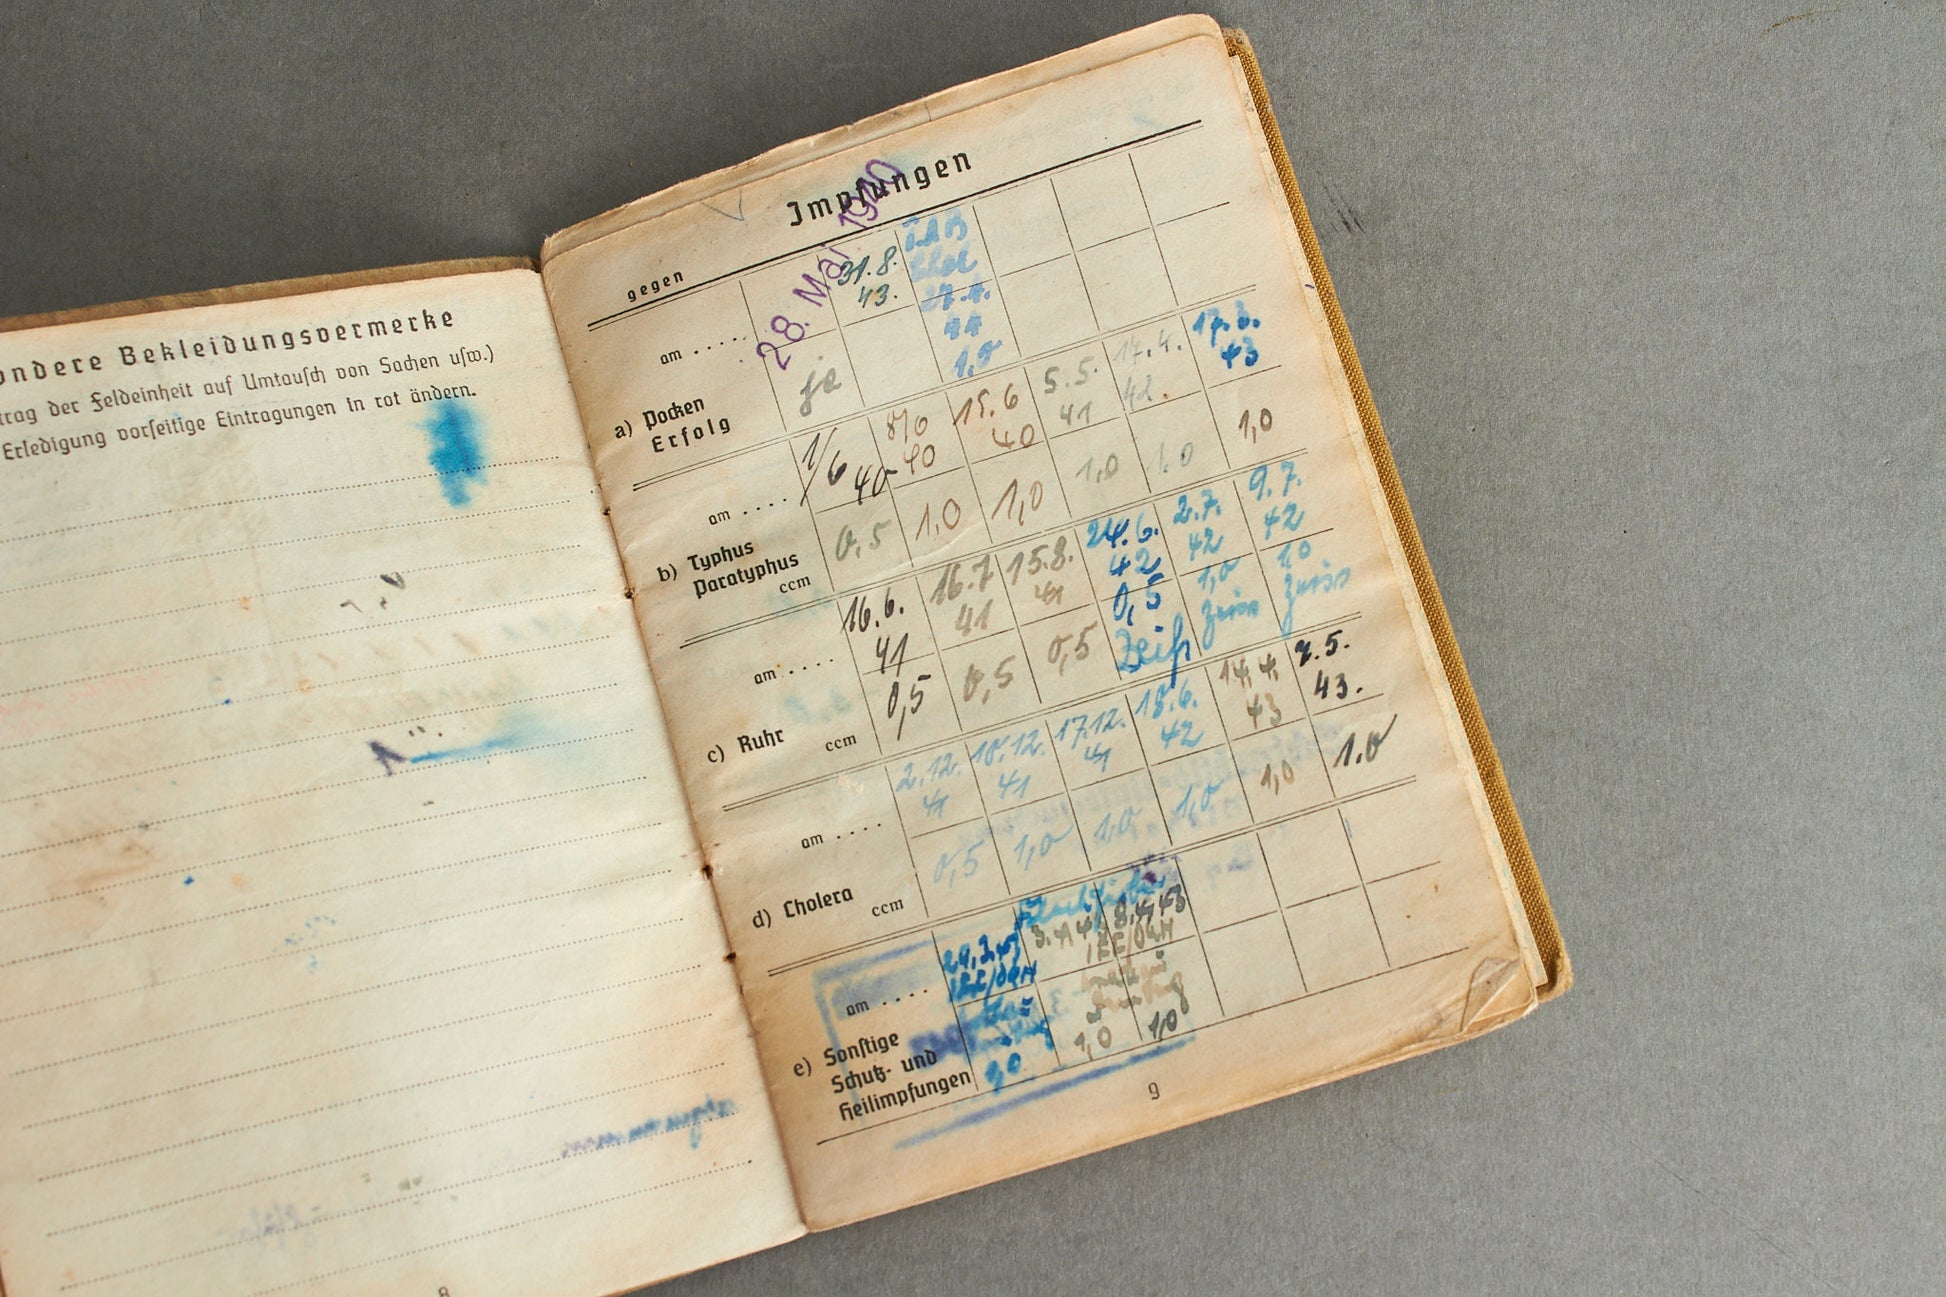 ondere Bekleidungsvermerke
trag der Feldeinheit auf Umtausch von Sachen usw.)
Erledigung vorseitige Eintragungen in rot ändern.
8
Impfungen
gegen
28. Mai 1940 31.8. T.A.B.
43. Chol
am ..... 27.4.
44
ja 1,0
a) Pocken
Erfolg
1/6 8/6 15.6 5.5. 17.4. 17.3.
40 40 40 41 42. 43
am ....
0,5 1.0 1,0 1,0 1.0 1,0
b) Typhus
Paratyphus
ccm
16.6. 16.7 15.8. 24.6. 2.7. 9.7.
41 41 41 42 42 42
am ....
0,5 0,5 0,5 0,5 1,0 1,0
Zeiß Zeiss Zeiss
c) Ruhr ccm
2.12. 10.12. 17.12. 18.6. 14.4. 2.5.
41 41 41 42 43 43.
am ....
0,5 1,0 1,0 1,0 1,0 1.0
d) Cholera ccm
am ....
1,0 1,0
e) Sonstige
Schutz- und
Heilimpfungen
9